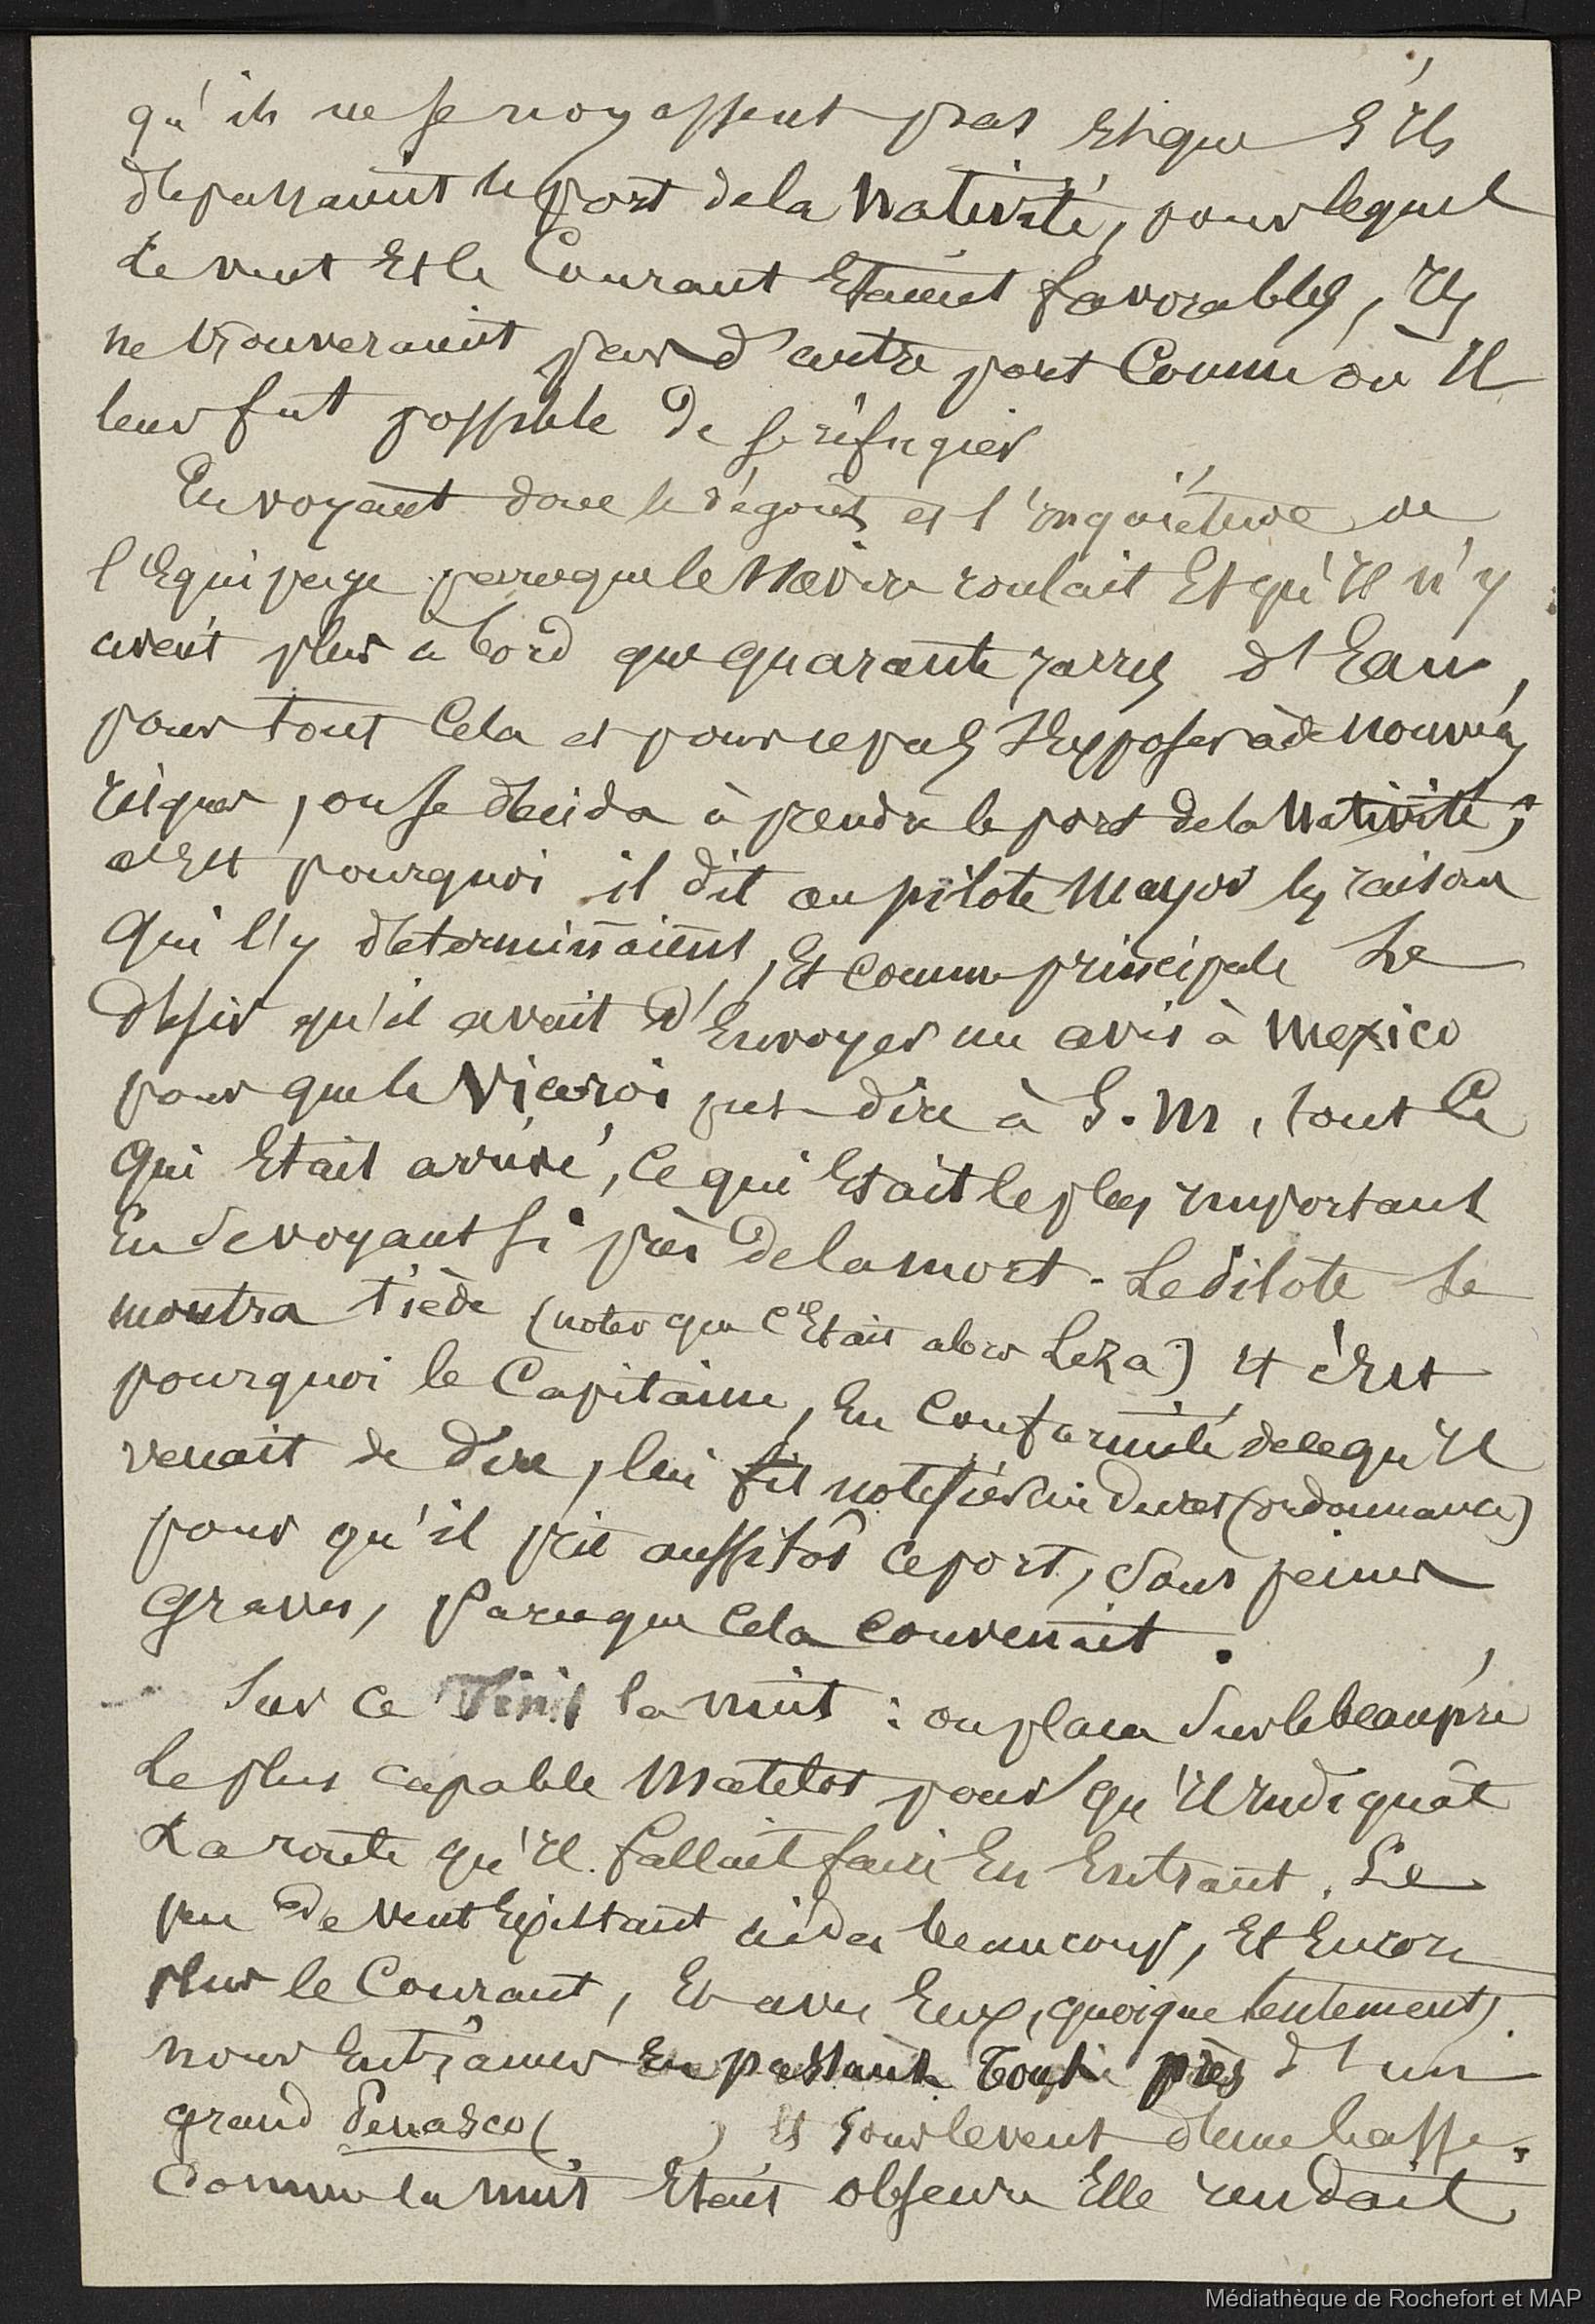 qu'ils ne se noyassent pas Et que s'Ils
dépassaient le port de la Nativité, pour lequel
Le vent Et le Courant Etaient favorables, Ils
ne trouveraient pas d'autre port Connu où Il
leur fut possible de se réfugier
En voyant donc le dégoût et l'inquiétude de
l'Equipage parce que le Navire roulait Et qu'Il n'y
avait plus à bord que quarante jarres d'Eau,
pour tout Cela et pour ne pas s'Exposer à de nouveaux
risques, on se décida à prendre le port de la Nativité;
c'Est pourquoi il dit au pilote Mayor les raisons
Qui l'y déterminaient, Et comme principale Le
désir qu'il avait d'Envoyer un avis à Mexico
pour que le Viceroi put dire à S. M. tout Ce
Qui Etait arrivé, Ce qui Etait le plus important
En se voyant si près de la mort. Le Pilote se
montra tiède (noter que c'Etait alors Leza) et c'Est
pourquoi le Capitaine, En Conformité de ce qu'Il
venait de dire, lui fit notifier un decret (ordonnance)
pour qu'il prit aussitôt ce port, Sous peines
Graves, Parce que Cela Convenait.
Sur ce Vint la nuit : on plaça Sur le beaupré
Le plus capable Matelot pour qu'Il Indiquât
La route qu'Il fallait faire En Entrant. Le
peu de vent Existant aida beaucoup, Et Encore
Plus le Courant, Et avec Eux, quoique lentement,
nous Entrâmes En passant tout près d'un
grand Penasco ( ) Et sous le vent d'une basse.
Comme la nuit Etait obscure Elle rendait